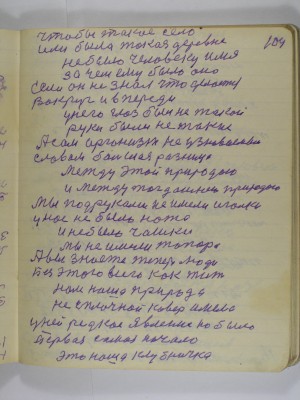 чтобы такое село
104
или была такая деревня
не было человеку имя
зачем ему было оно
Если он не знал что делается
Вокруг и впереди
у него глаз был не такой
руки были не такие
А сам организм не узнаваем
словам большая разница
Между этой природою
и между тогдашней природою
Мы под руками не имели иголки
у нас не было ножа
и не было чашки
мы не имели топора
А вы знаете теперь люди
Без этого всего как жит
нам наша природа
не сплочной ковер имела
у ней редкое явление но было
Первая самая начало
это наша клубничка